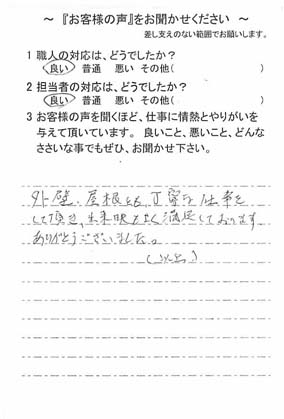 ～ 『お客様の声』をお聞かせください ～
差し支えのない範囲でお願いします。
1 職人の対応は、どうでしたか？
良い 普通 悪い その他( )
2 担当者の対応は、どうでしたか？
良い 普通 悪い その他( )
3 お客様の声を聞くほど、仕事に情熱とやりがいを
与えて頂いています。 良いこと、悪いこと、どんな
ささいな事でもぜひ、お聞かせ下さい。
外壁、屋根とも、丁寧な仕事を
して頂き、出来映えよく満足しております。
ありがとうございました。
(以上)